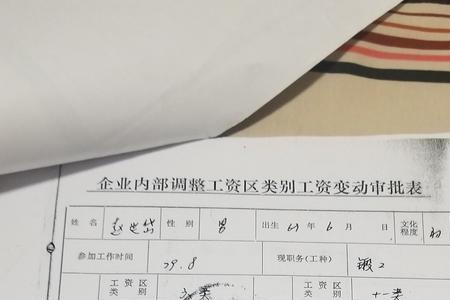 企业内部调整工资区类别工资变动审批表
姓名 赵 性别 男 出生 61年6月 日 文化程度 初
参加工作时间 79.8 现职务(工种) 锻工
工资区类别 六类 工资区类别 十一类